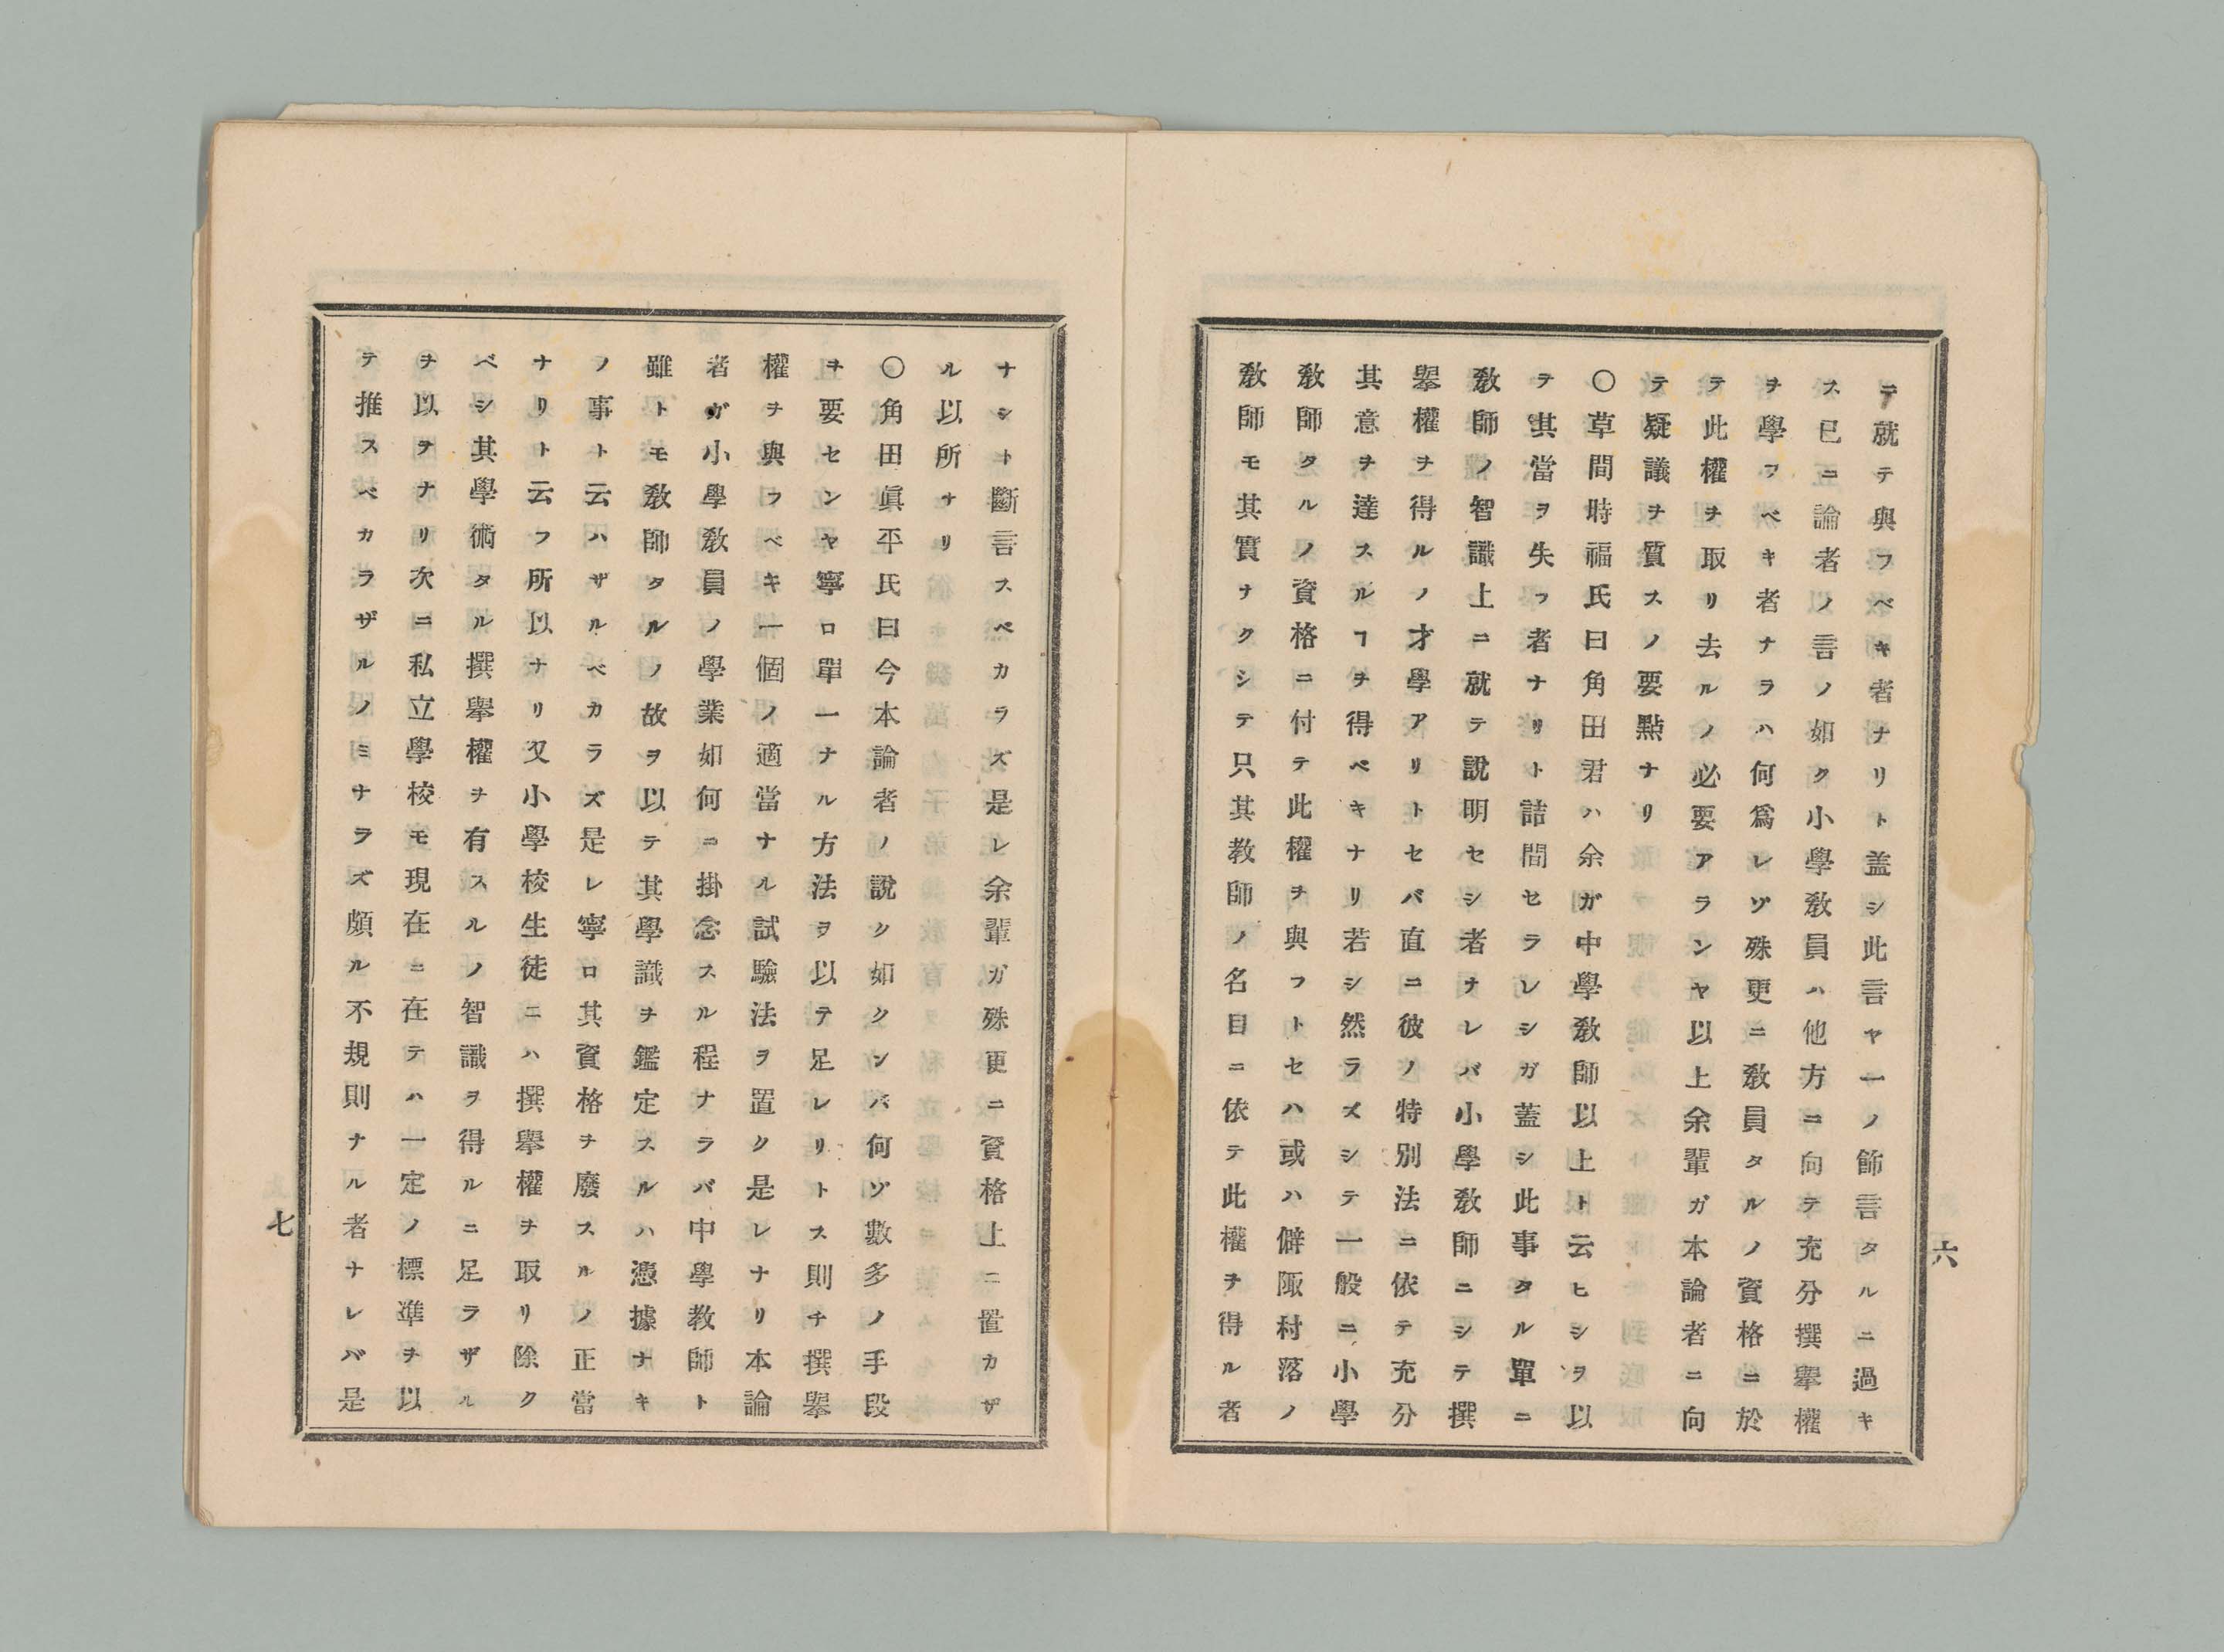 ニ就テ與フベキ者ナリト盖シ此言ヤ一ノ餙言タルニ過キ
ス已ニ論者ノ言ノ如ク小學敎員ハ他方ニ向テ充分撰擧權
ヲ學フベキ者ナラハ何爲レゾ殊更ニ敎員タルノ資格ニ於
テ此權ヲ取リ去ルノ必要アランヤ以上余輩ガ本論者ニ向
テ疑議ヲ質スノ要點ナリ
〇草間時福氏曰角田君ハ余ガ中學敎師以上ト云ヒシヲ以
テ其當ヲ失フ者ナリト詰問セラレシガ蓋シ此事タル單ニ
敎師ノ智識上ニ就テ說明セシ者ナレバ小學敎師ニシテ撰
擧權ヲ得ルノ才學アリトセバ直ニ彼ノ特別法ニ依テ充分
其意ヲ達スルヿヲ得ベキナリ若シ然ラズシテ一般ニ小學
敎師タルノ資格ニ付テ此權ヲ與フトセハ或ハ僻陬村落ノ
敎師モ其實ナクシテ只其教師ノ名目ニ依テ此權ヲ得ル者
六
ナシト斷言スベカラズ是レ余輩ガ殊更ニ資格上ニ置カザ
ル以所ナリ
〇角田眞平氏曰今本論者ノ說ク如クンバ何ゾ數多ノ手段
ヲ要センヤ寧ロ單一ナル方法ヲ以テ足レリトス則チ撰擧
權ヲ與フベキ一個ノ適當ナル試驗法ヲ置ク是レナリ本論
者ガ小學敎員ノ學業如何ニ掛念スル程ナラバ中學教師ト
雖トモ敎師タルノ故ヲ以テ其學識ヲ鑑定スルハ憑據ナキ
ノ事ト云ハザルベカラズ是レ寧ロ其資格ヲ廢スルノ正當
ナリト云フ所以ナリ又小學校生徒ニハ撰擧權ヲ取リ除ク
ベシ其學術タル撰擧權ヲ有スルノ智識ヲ得ルニ足ラザル
ヲ以ヲナリ次ニ私立學校モ現在ニ在テハ一定ノ標準ヲ以
テ推スベカラザルノミナラズ頗ル不規則ナル者ナレバ是
七